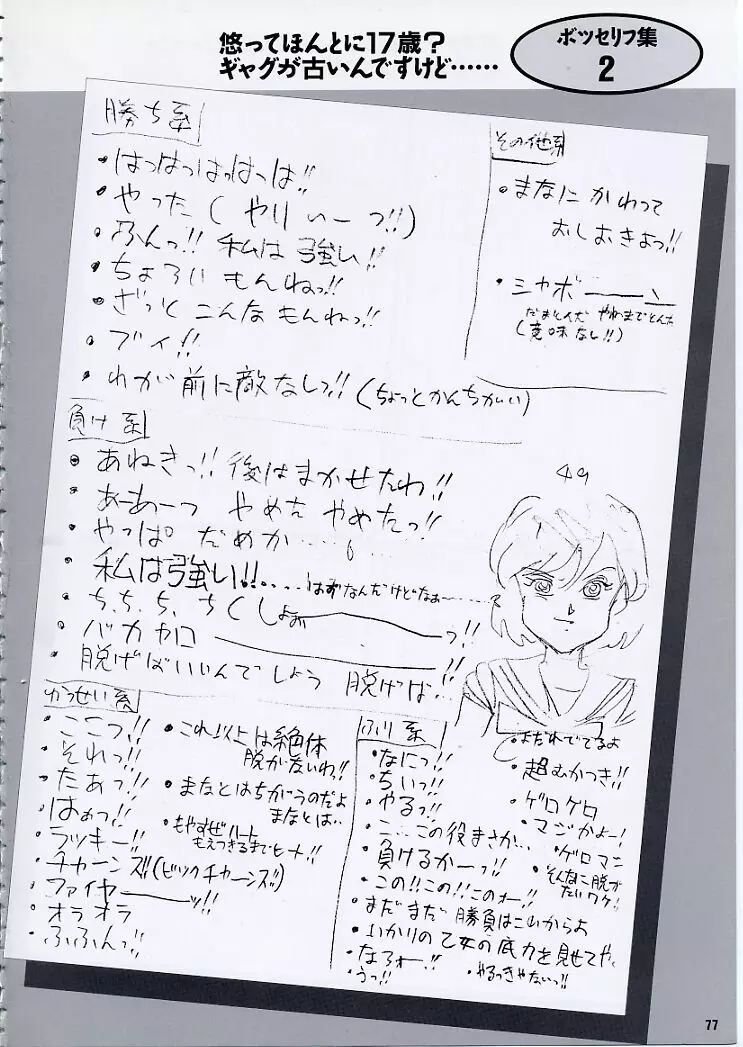 悠ってほんとに17歳?
ギャグが古いんですけど……
ボツセリフ集
2
勝ち系
・はっはっはっはっは!!
・やった(やりぃーっ!!)
・ふんっ!! 私は強い!!
・ちょろいもんねっ!!
・ざっとこんなもんねっ!!
・ブイ!!
・わが前に敵なしっ!!(ちょっとかんちがい)
その他系
・まなにかわって
おしおきよっ!!
・シャボーーン
(意味なし!!)
負け系
・あねきっ!! 後はまかせたわ!!
・あーあーっ やめた やめたっ!!
・やっぱ だめか……
・私は強い!!……はずなんだけどなぁ……
・ち、ち、ち、ちくしょぉ
・バカヤロ――っ!!
・脱げばいいんでしょう 脱げば!!
49
かっせい系
・ここっ!!
・それっ!!
・たあっ!!
・はぁっ!!
・ラッキー!!
・チャーンズ!!(ビックチャーンズ!!)
・ファイヤーーッ!!
・オラオラ
・ふふんっ!!
・これ以上は絶体
脱がないわ!!
・まなとはちがうのだよ
まなとは..
・もやすぜハート
もえつきるまでヒート!!
ふり系
・なにっ!!
・ちいっ!!
・やるっ!!
・こ…この役まさか…
・負けるかーっ!!
・この!!この!!このォー!!
・まだまだ 勝負はこれからよ
・いかりの乙女の底力を見せてやる
・なろォー!!
・うっ!!
・やるっきゃないっ!!
・まだれででるよ
・超むかつき!!
・ゲロゲロ
・マジかよー!
・ゲロマニ
・そんなに脱が
たいワケ!
77